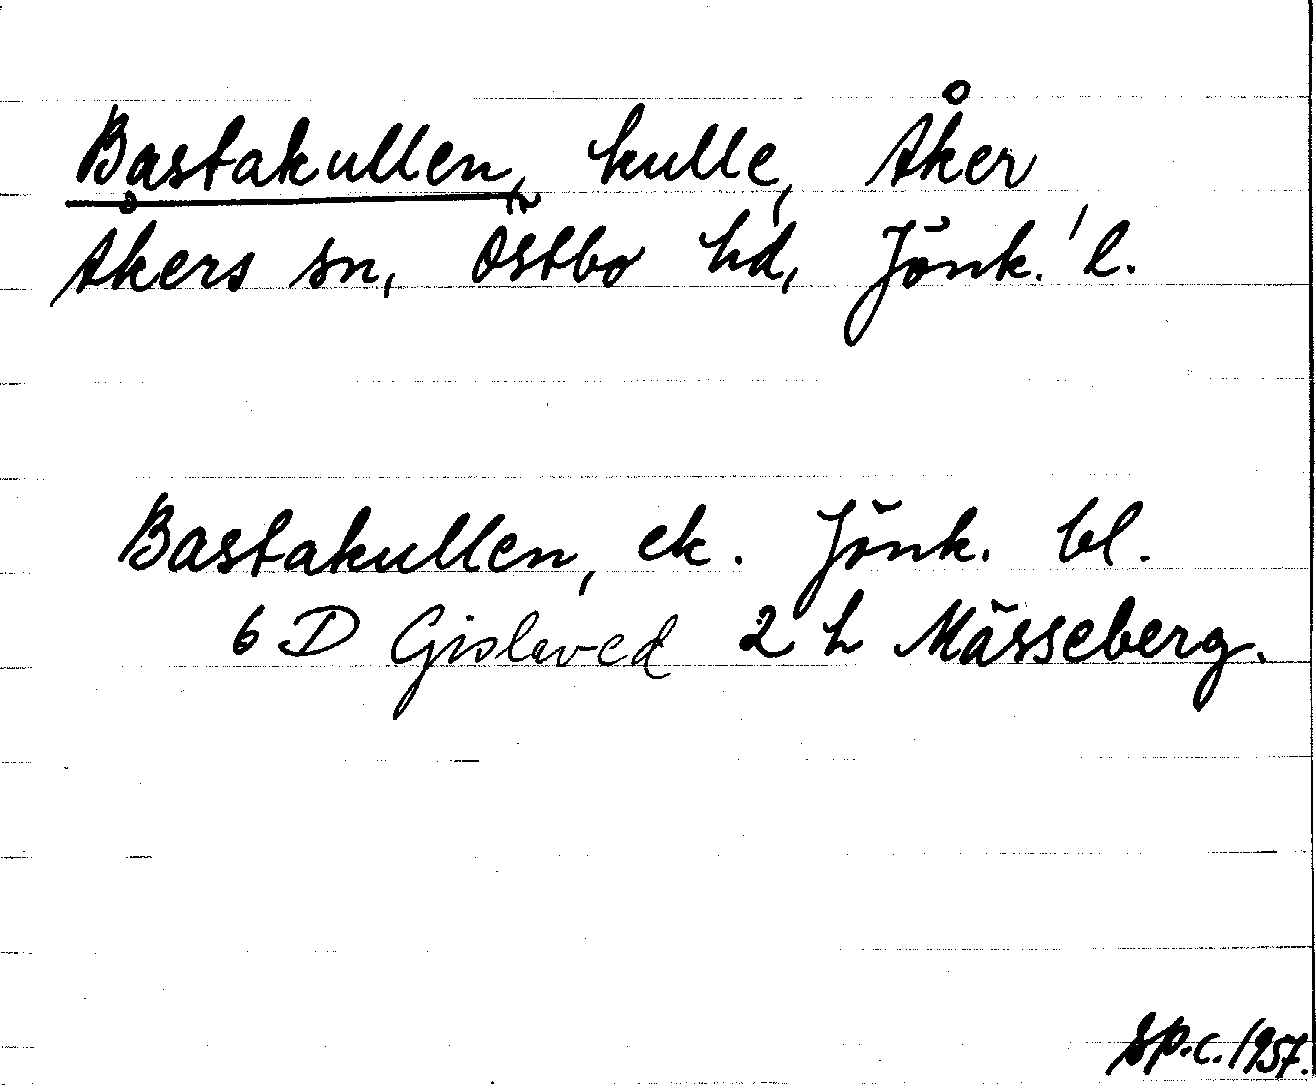 Bastakullen, kulle, Åker
Åkers sn, Östbo hd, Jönk. l.
Bastakullen, ek. Jönk. bl.
6 D Gislaved 2 h Mässeberg.
SP.C. 1957.